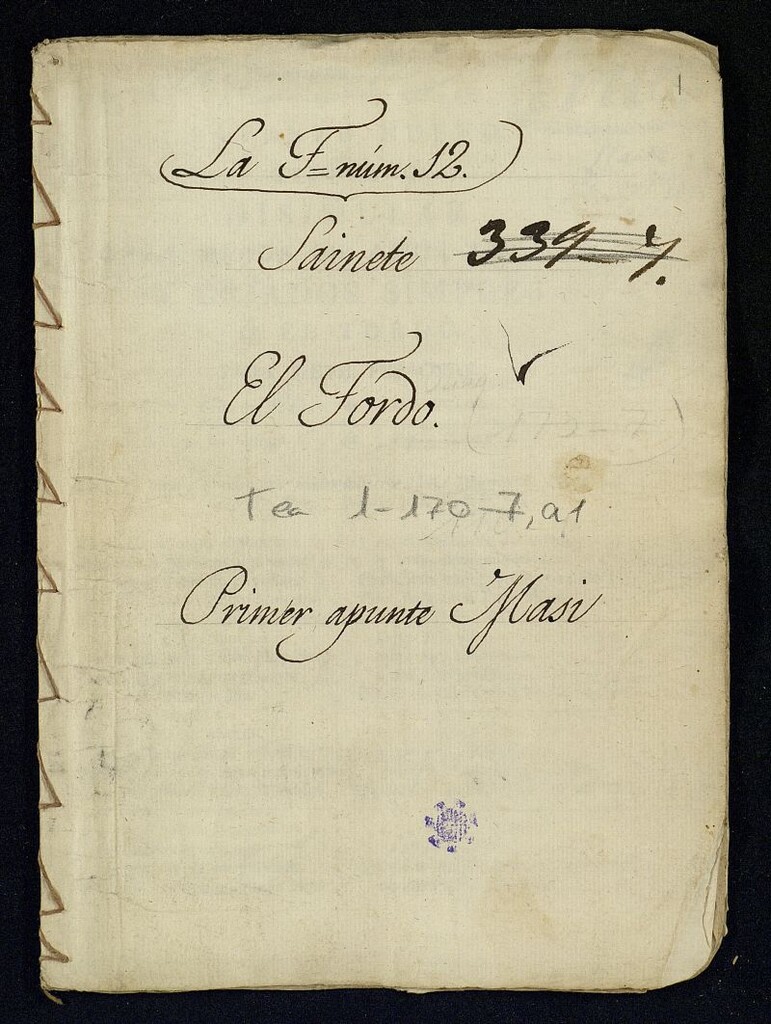 1
La F= núm. 12.
Sainete 339-7.
El Tordo.
(173=7)
Tea 1-170-7, a1
Primer apunte Masi